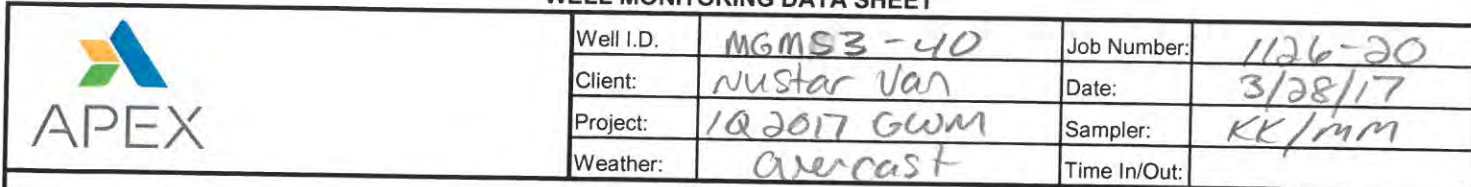 WELL MONITORING DATA SHEET
APEX
Well I.D. MGMS3-40 Job Number: 1126-20
Client: Nustar Van Date: 3/28/17
Project: 1Q2017 GWM Sampler: KK/mm
Weather: overcast Time In/Out: